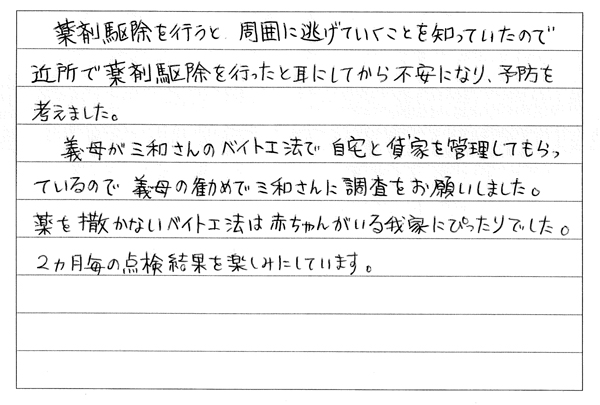 薬剤駆除を行うと、周囲に逃げていくことを知っていたので
近所で薬剤駆除を行ったと耳にしてから不安になり、予防を
考えました。
義母が三和さんのベイト工法で自宅と貸家を管理してもらっ
ているので義母の勧めで三和さんに調査をお願いしました。
薬を撒かないベイト工法は赤ちゃんがいる我家にぴったりでした。
2ヵ月毎の点検結果を楽しみにしています。